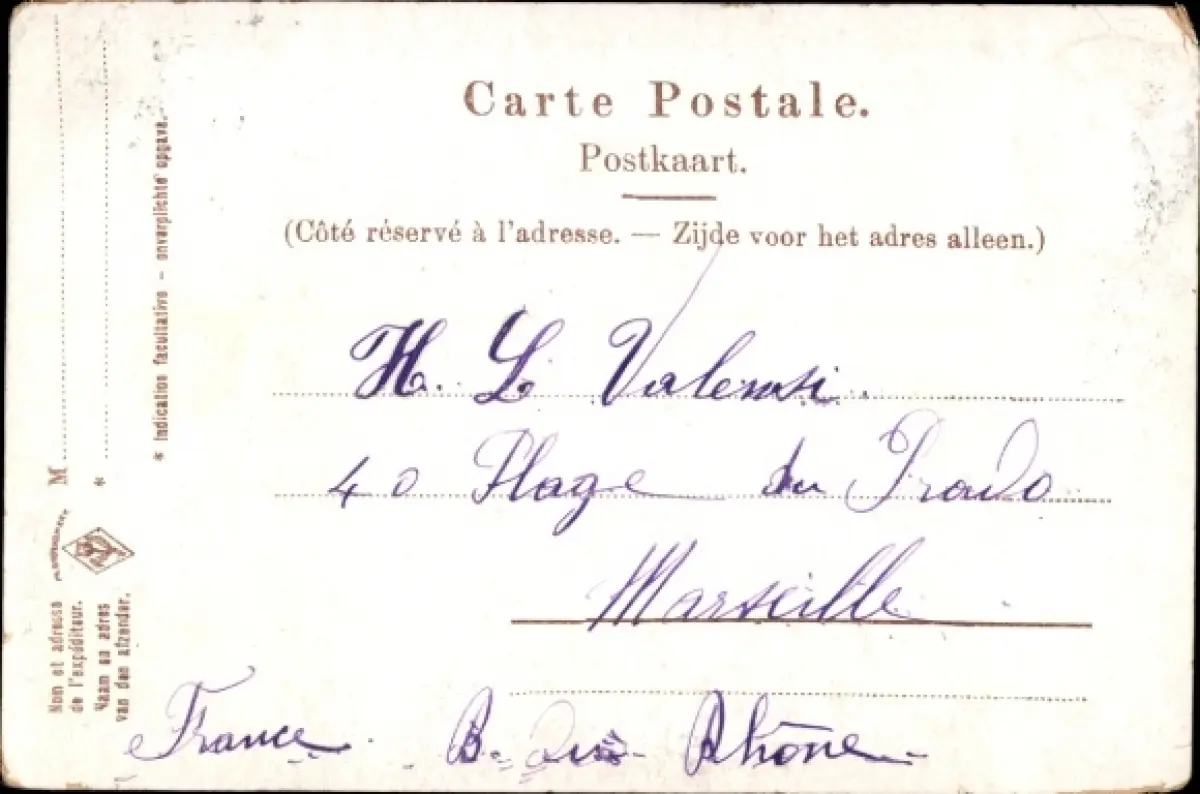 Carte Postale.
Postkaart.
(Côté réservé à l'adresse. — Zijde voor het adres alleen.)
H. L Valensi.
40 Plage du Prado
Marseille
France. B. du Rhône.
M
*
* Indication facultative – onverplichte opgave.
Nom et adresse
de l'expéditeur.
Naam en adres
van den afzender.